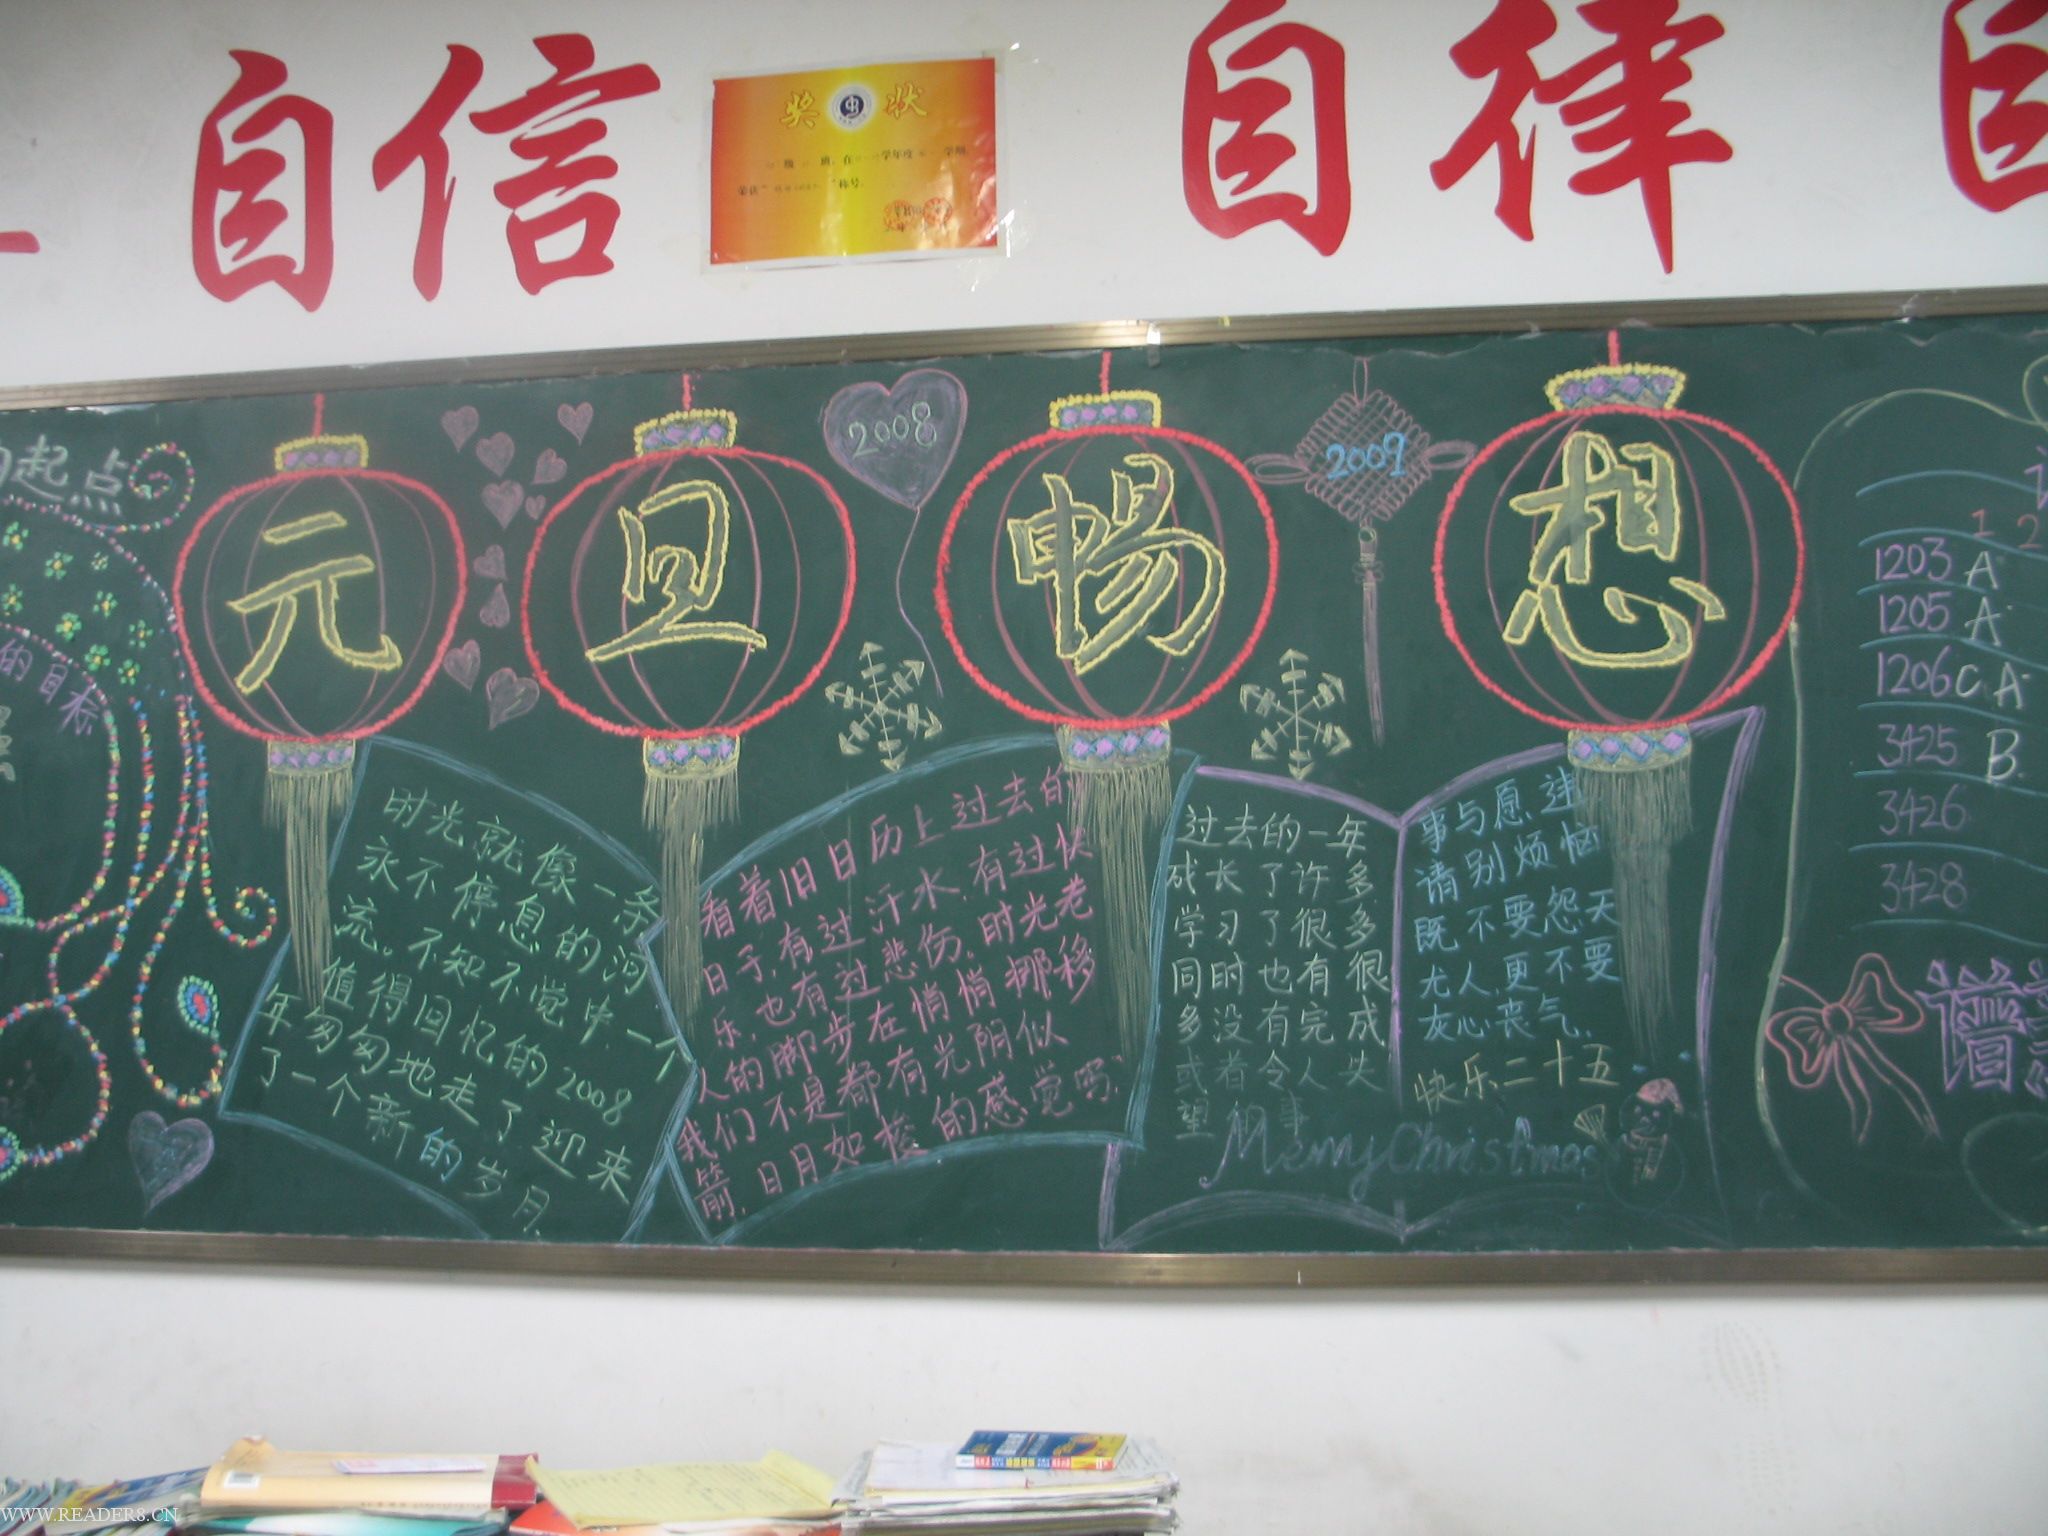 自信
奖状
自律
自
起点
2008
2009
元旦畅想
的目标
时光就像一条
永不停息的河
流。不知不觉中,一个
值得回忆的2008
年匆匆地走了迎来
了一个新的岁月.
看着旧日历上过去的
日子,有过汗水,有过快
乐,也有过悲伤,时光老
人的脚步在悄悄挪移
我们不是都有光阴似
箭,日月如梭的感觉吗.
过去的一年
成长了许多
学习了很多
同时也有很
多没有完成
或者令人失
望的事
事与愿违,
请别烦恼
既不要怨天
尤人,更不要
灰心丧气.
快乐二十五
Merry Christmas
1 2
1203 A
1205 A
1206 C A
3425 B
3426
3428
WWW.READER8.CN